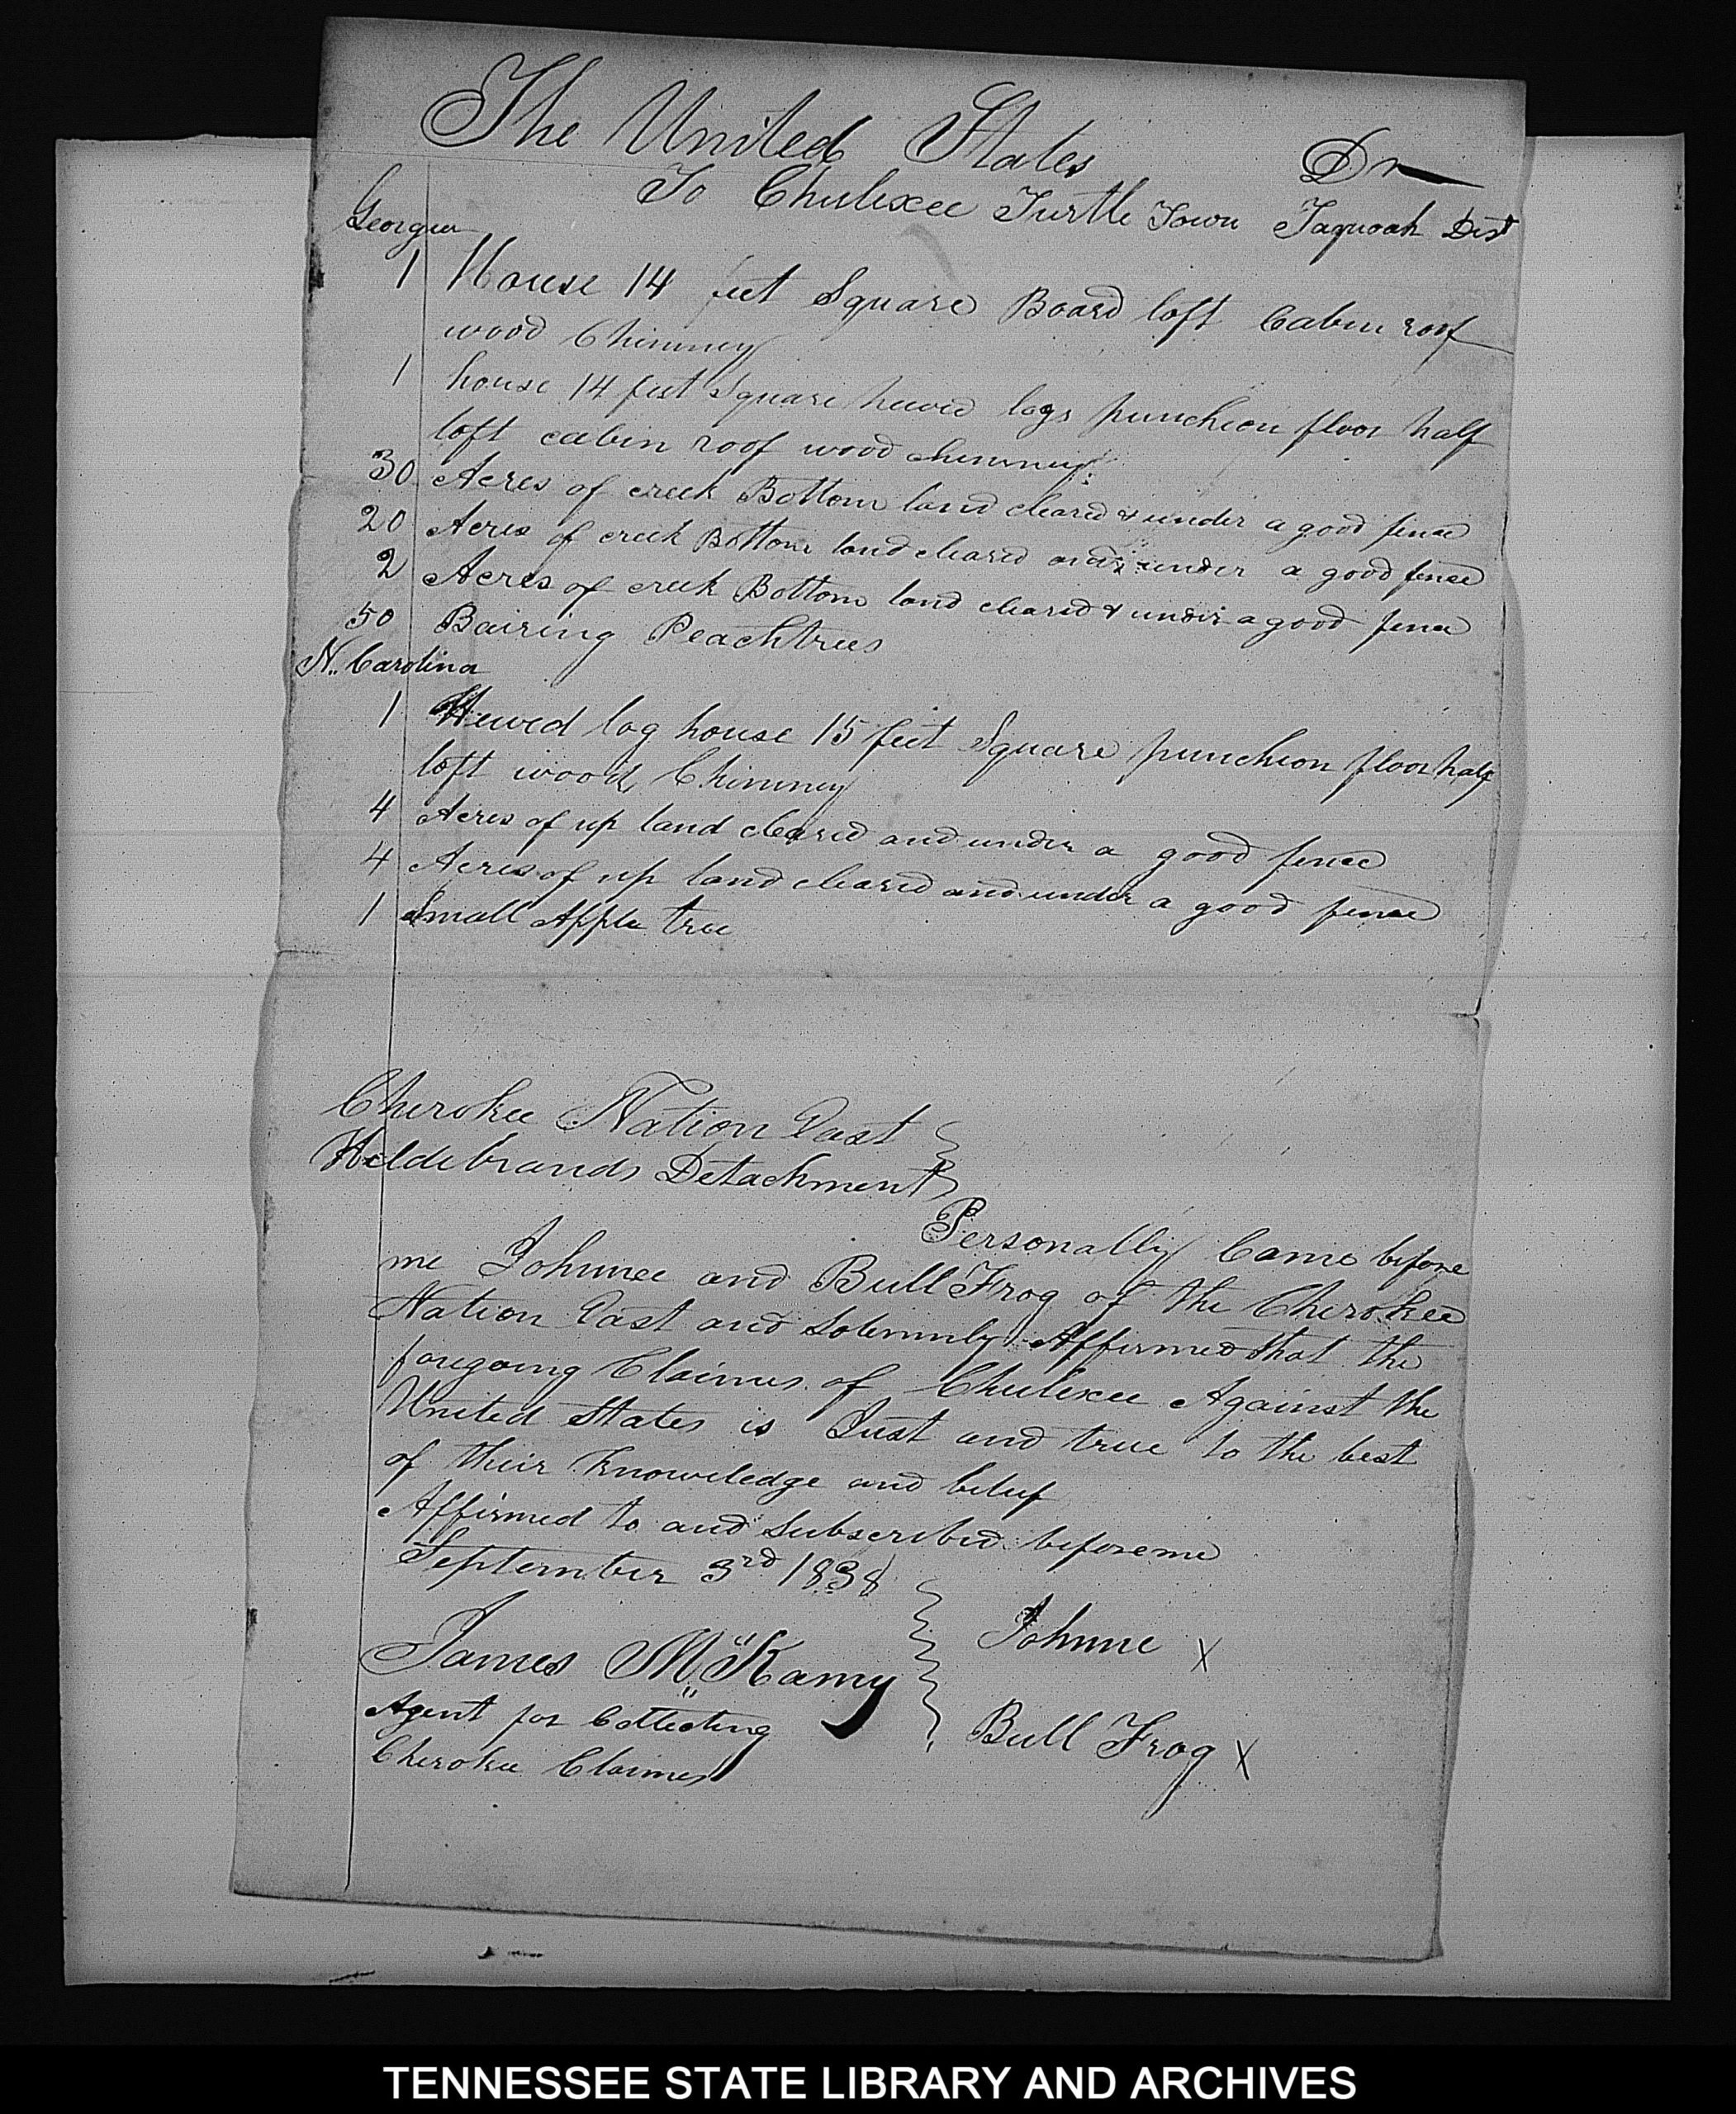 The United States Dr
To Chulexee Turtle Town Taquoah Dist
Georgia
1 House 14 feet Square Board loft Cabin roof
wood Chimney
1 house 14 feet Square hewed logs puncheon floor half
loft cabin roof wood chimney
30 Acres of creek Bottom land cleared & under a good fence
20 Acres of creek Bottom land cleared and under a good fence
2 Acres of creek Bottom land cleared & under a good fence
50 Bairing Peachtrees
N. Carolina
1 Hewed log house 15 feet Square puncheon floor half
loft wood Chimney
4 Acres of up land cleared and under a good fence
4 Acres of up land cleared and under a good fence
1 Small Apple tree
Cherokee Nation East
Hildebrands Detachment
Personally Came before
me Johnnee and Bull Frog of the Cherokee
Nation East and Solemnly Affirmed that the
foregoing Claimes of Chulexee Against the
United States is Just and true to the best
of their Knowledge and belief
Affirmed to and Subscribed before me
September 3rd 1838
James McKamy
Agent for Collecting
Cherokee Claimes
Johnne X
Bull Frog X
TENNESSEE STATE LIBRARY AND ARCHIVES